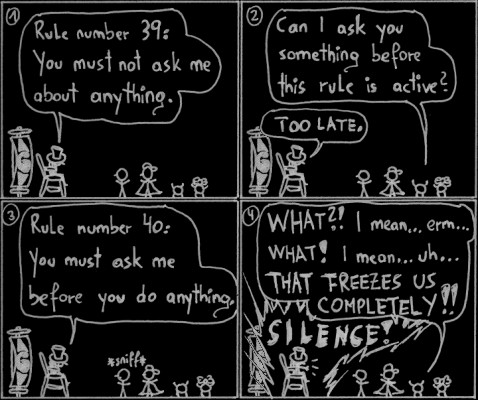 1
Rule number 39:
You must not ask me
about anything.
2
Can I ask you
something before
this rule is active?
TOO LATE.
3
Rule number 40:
You must ask me
before you do anything.
*sniff*
4
WHAT?! I mean... erm...
WHAT! I mean... uh...
THAT FREEZES US
COMPLETELY!!
SILENCE!